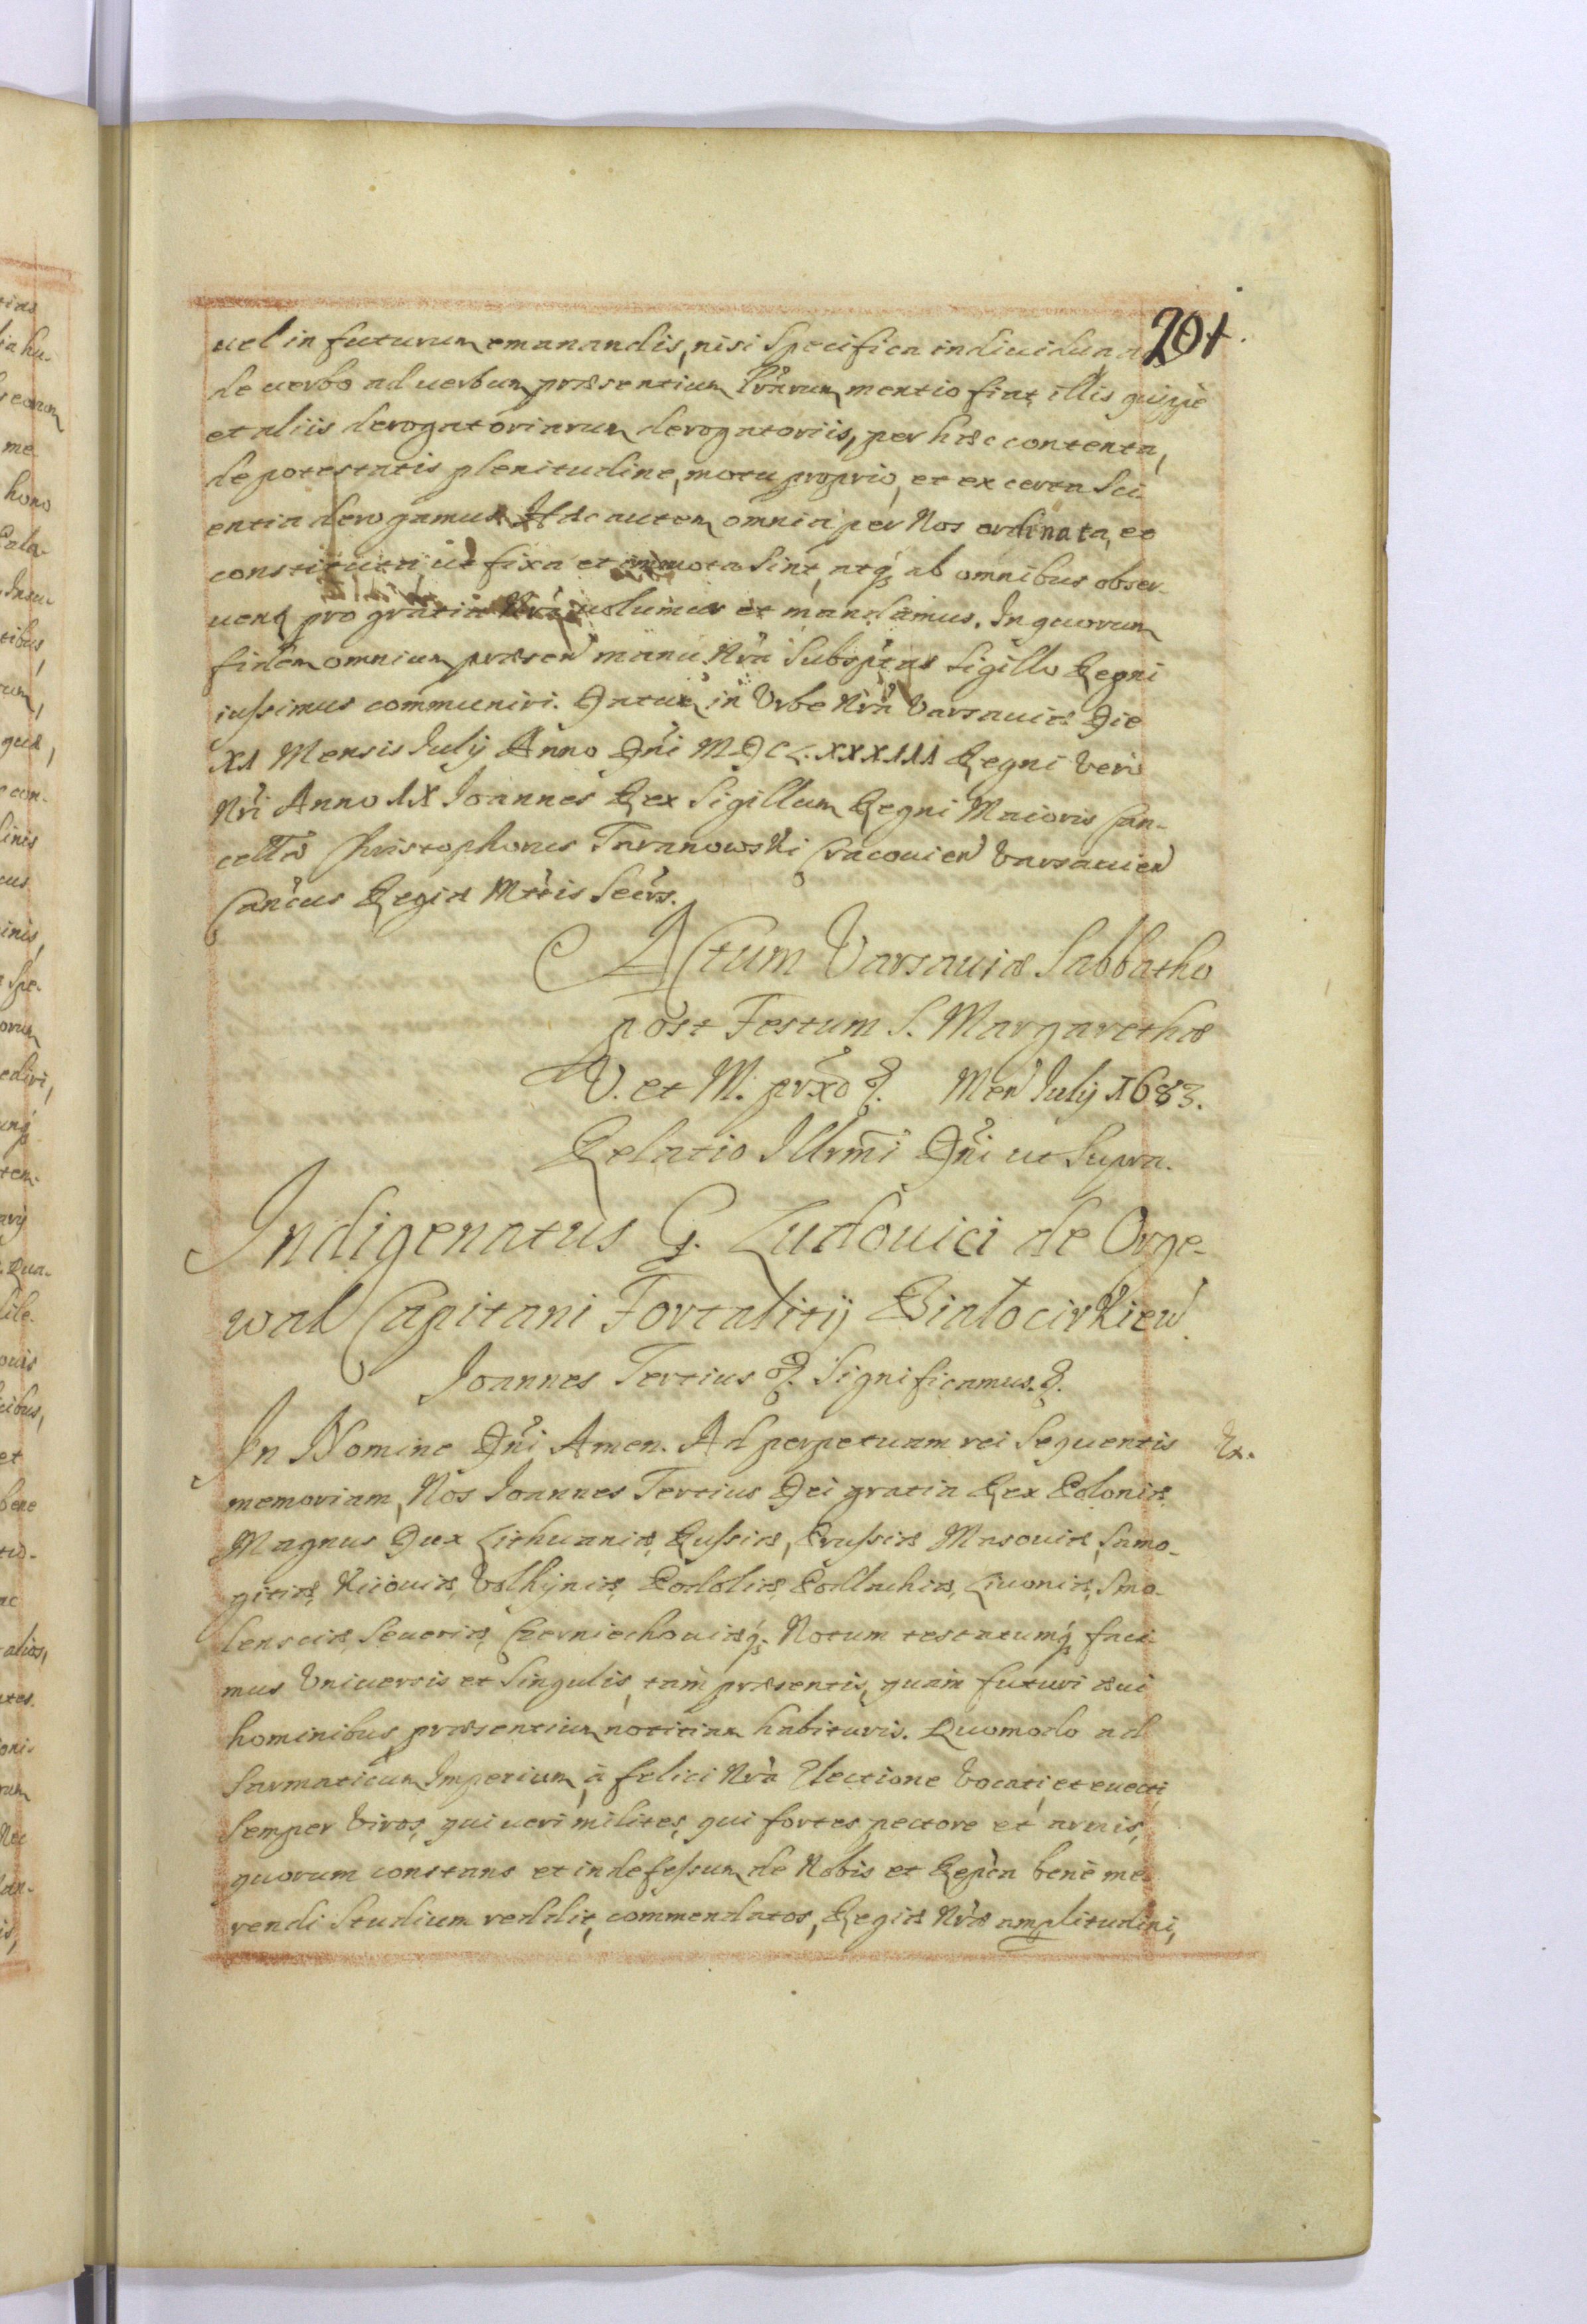 201.
uel in futurum emanandis, nisi Specifica indiuidua
de uerbo ad uerbum præsentium Lrarum mentio fiat, illis quippe
et aliis derogatoriarum derogatoriis, per hæc contenta,
de potestatis plenitudine, motu proprio, et ex certa Sci-
entia derogamus. Hæc autem omnia per Nos ordinata, et
constituta, ut fixa et immota Sint, atq́ ab omnibus obser-
uent pro gratia Nrã uolumus et mandamus. In quorum
fidem omnium præsen̄ manu Nrã Subsptas Sigillo Regni
iussimus communiri. Datum in Urbe Nrã Varsauiæ Die
XI Mensis Iulij Anno Dni MDCLXXXIII Regni Vero
Nri Anno IX Joannes Rex Sigillum Regni Maioris Can-
cellæ Christophorus Taranowski Cracouien̄ Varsauien̄
Cancus Regiæ Mttis Secrs.
Actum Varsauiæ Sabbatho
post Festum S. Margarethæ
V. et M. prxō &. Men̄ Iulij 1683.
Relatio Illrmi Dni ut Supra.
Indigenatus G. Ludouici de Orge-
wal Capitani Fortalitij Białocirkiew.
Joannes Tertius &. Significamus. &.
In Nomine Dni Amen. Ad perpetuam rei Sequentis
memoriam, Nos Joannes Tertius Dei gratia Rex Poloniæ,
Magnus Dux Lithuaniæ, Russiæ, Prussiæ Masouiæ, Samo-
gitiæ, Kiiouiæ, Volhyniæ, Podoliæ, Podlachiæ, Liuoniæ, Smo-
lensciæ, Seueriæ, Czerniechouiæq́. Notum testatumq́ faci-
mus Vniuersis et Singulis, tam præsentis, quam futuri æui
hominibus præsentium notitiam habituris. Quomodo ad
Sarmaticum Imperium, à felici Nrã Electione Vocati, et euecti,
Semper Viros, qui ueri milites, qui fortes pectore et armis,
quorum constans et indefessum de Nobis et Repca benè me-
rendi Studium reddit, commendatos, Regiæ Nræ amplitudini,